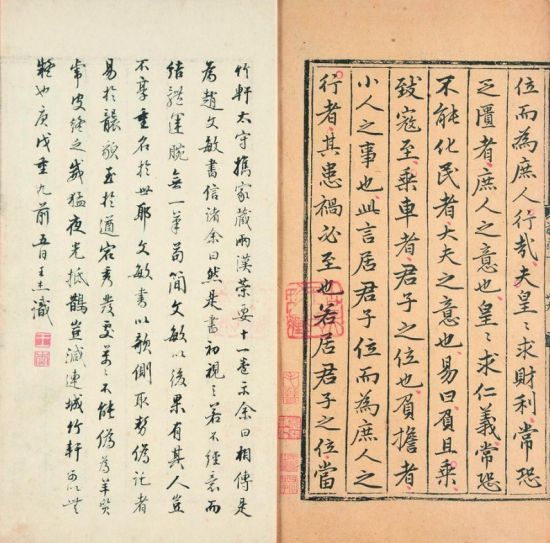 位而為庶人行哉夫皇〻求財利常恐
乏匱者庶人之意也皇〻求仁義常恐
不能化民者大夫之意也易曰負且乗
致寇至乗車者君子之位也負擔者
小人之事也此言居君子位而為庶人之
行者其患禍必至也若居君子之位當
竹軒太守攜家藏兩漢策要十一卷示余曰相傳是
為趙文敏書信諸余曰然是書初視之若不經意而
結體運腕無一筆苟簡文敏以後果有其人豈
不享重名於世耶文敏書以欹側取勢偽託者
易於襲貌至於遒宕秀發處萬〻不能偽為羊質
虎皮繪之威猛夜光抵鵲豈減連城竹軒可以無
疑也庚戌重九前五日王杰識